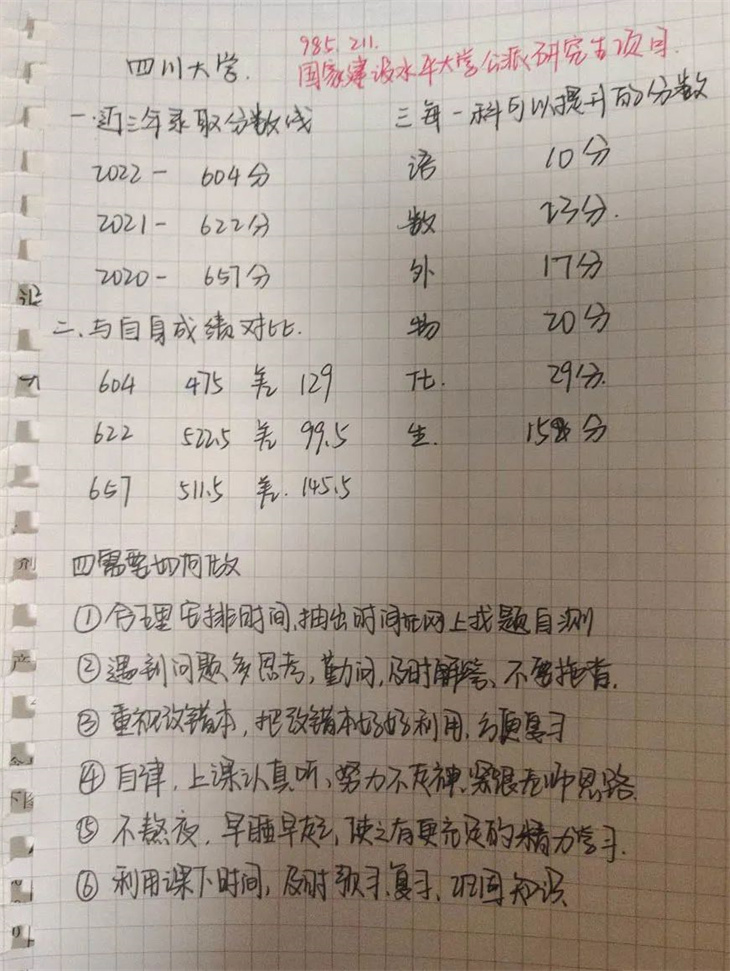 四川大学.
985.211.
国家建设水平大学公派研究生项目.
一.近三年录取分数线
2022- 604分
2021- 622分
2020- 657分
二.与自身成绩对比.
604 475 差 129
622 522.5 差 99.5
657 511.5 差. 145.5
三每一科可以提升的分数
语 10分
数 23分.
外 17分
物 20分
化. 29分.
生. 15分
四需要如何做
①合理安排时间,抽出时间在网上找题自测
②遇到问题多思考,勤问,及时解答、不要拖着.
③重视改错本,把改错本好好利用,方便复习
④自律,上课认真听、努力不走神、紧跟老师思路.
⑤不熬夜,早睡早起,使之有更充足的精力学习.
⑥利用课下时间,及时预习、复习、巩固知识
记
剂
产